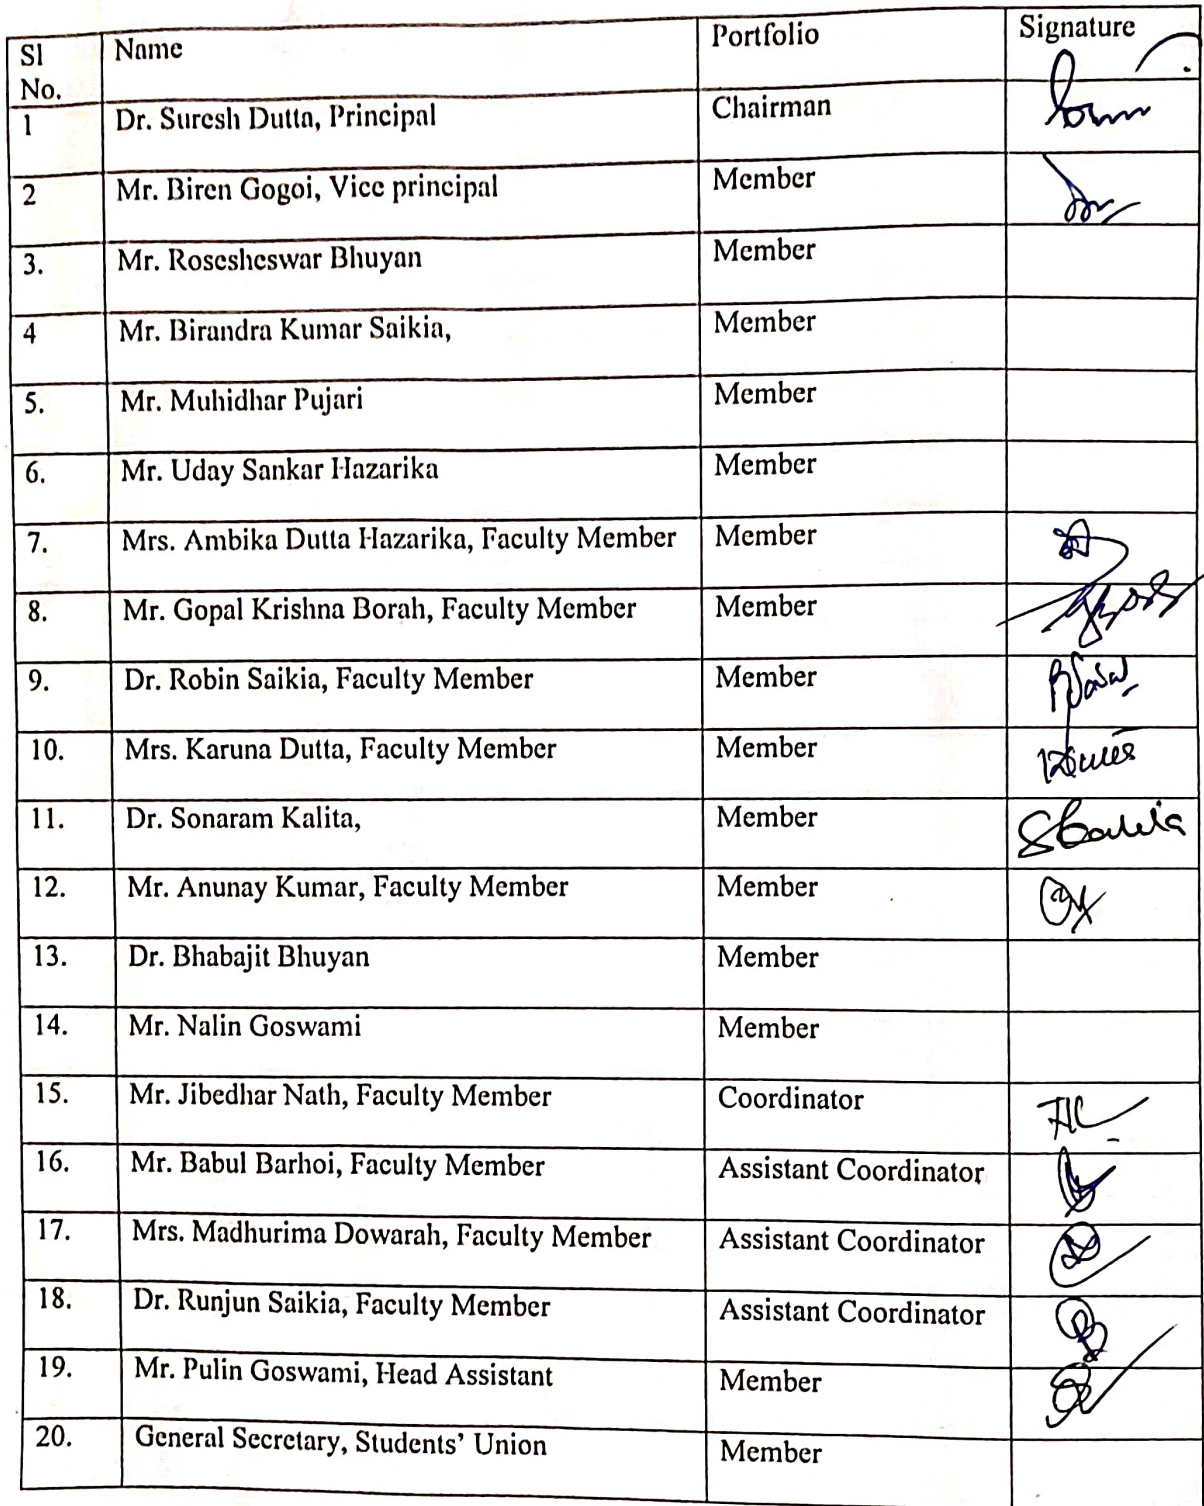 Sl No. Name Portfolio Signature
1 Dr. Suresh Dutta, Principal Chairman
2 Mr. Biren Gogoi, Vice principal Member
3. Mr. Rosesheswar Bhuyan Member
4 Mr. Birandra Kumar Saikia, Member
5. Mr. Muhidhar Pujari Member
6. Mr. Uday Sankar Hazarika Member
7. Mrs. Ambika Dutta Hazarika, Faculty Member Member
8. Mr. Gopal Krishna Borah, Faculty Member Member
9. Dr. Robin Saikia, Faculty Member Member
10. Mrs. Karuna Dutta, Faculty Member Member
11. Dr. Sonaram Kalita, Member SKalita
12. Mr. Anunay Kumar, Faculty Member Member
13. Dr. Bhabajit Bhuyan Member
14. Mr. Nalin Goswami Member
15. Mr. Jibedhar Nath, Faculty Member Coordinator
16. Mr. Babul Barhoi, Faculty Member Assistant Coordinator
17. Mrs. Madhurima Dowarah, Faculty Member Assistant Coordinator
18. Dr. Runjun Saikia, Faculty Member Assistant Coordinator
19. Mr. Pulin Goswami, Head Assistant Member
20. General Secretary, Students' Union Member